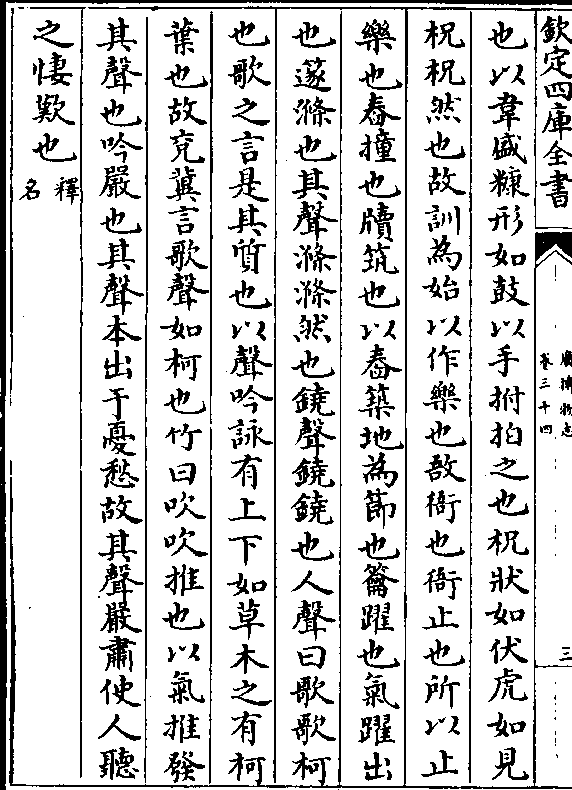 欽定四庫全書
廣博物志
卷三十四
三
也以韋盛糠形如鼓以手拊拍之也柷狀如伏虎如見
柷柷然也故訓為始以作樂也敔衙也衙止也所以止
樂也舂撞也牘筑也以舂築地為節也籥躍也氣躍出
也篴滌也其聲滌滌然也鐃聲鐃鐃也人聲曰歌歌柯
也歌之言是其質也以聲吟詠有上下如草木之有柯
葉也故兖冀言歌聲如柯也竹曰吹吹推也以氣推發
其聲也吟嚴也其聲本出于憂愁故其聲嚴肅使人聽
之悽歎也釋名